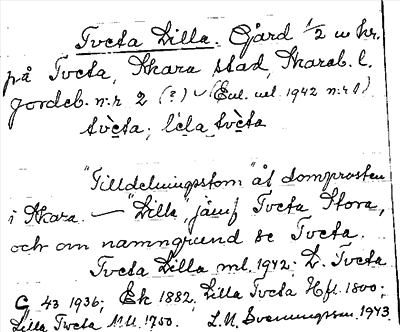 Tveta Lilla. Gård 1/2 w hr.
på Tveta, Skara stad, Skarab. l.
Jordeb. n:r 2 (?) (Enl. uel. 1942 n:r 1).
tvèta; lìla tvèta
"Tilldelningstom" åt domprosten
i Skara. — "Lilla", jämf Tveta Stora,
och om namngrund se Tveta.
Tveta Lilla ml. 1942; D. Tveta
G 43 1936; Ek 1882, Lilla Tveta Hfl. 1800;
Lilla Tweta 1750. L.M. Svenungsson 1943.